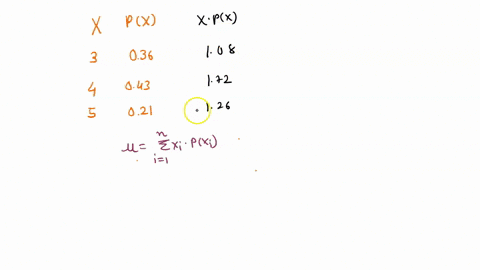 X P(X) X·P(X)
3 0.36 1.08
4 0.43 1.72
5 0.21 1.26
μ = n Σ i=1 xi · P(xi)